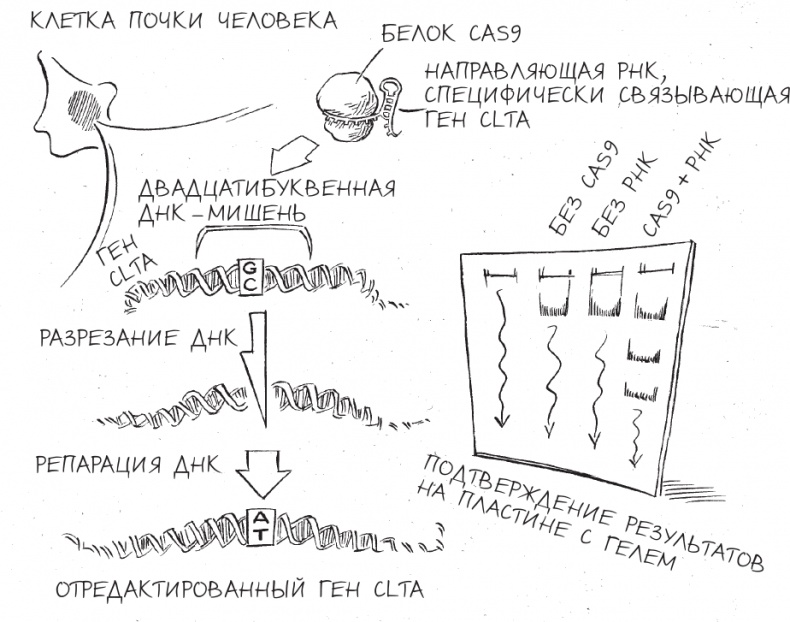 КЛЕТКА ПОЧКИ ЧЕЛОВЕКА
БЕЛОК CAS9
НАПРАВЛЯЮЩАЯ РНК,
СПЕЦИФИЧЕСКИ СВЯЗЫВАЮЩАЯ
ГЕН CLTA
ДВАДЦАТИБУКВЕННАЯ
ДНК – МИШЕНЬ
ГЕН
CLTA
G
C
РАЗРЕЗАНИЕ ДНК
РЕПАРАЦИЯ ДНК
A
T
ОТРЕДАКТИРОВАННЫЙ ГЕН CLTA
БЕЗ CAS9
БЕЗ РНК
CAS9 + РНК
ПОДТВЕРЖДЕНИЕ РЕЗУЛЬТАТОВ
НА ПЛАСТИНЕ С ГЕЛЕМ